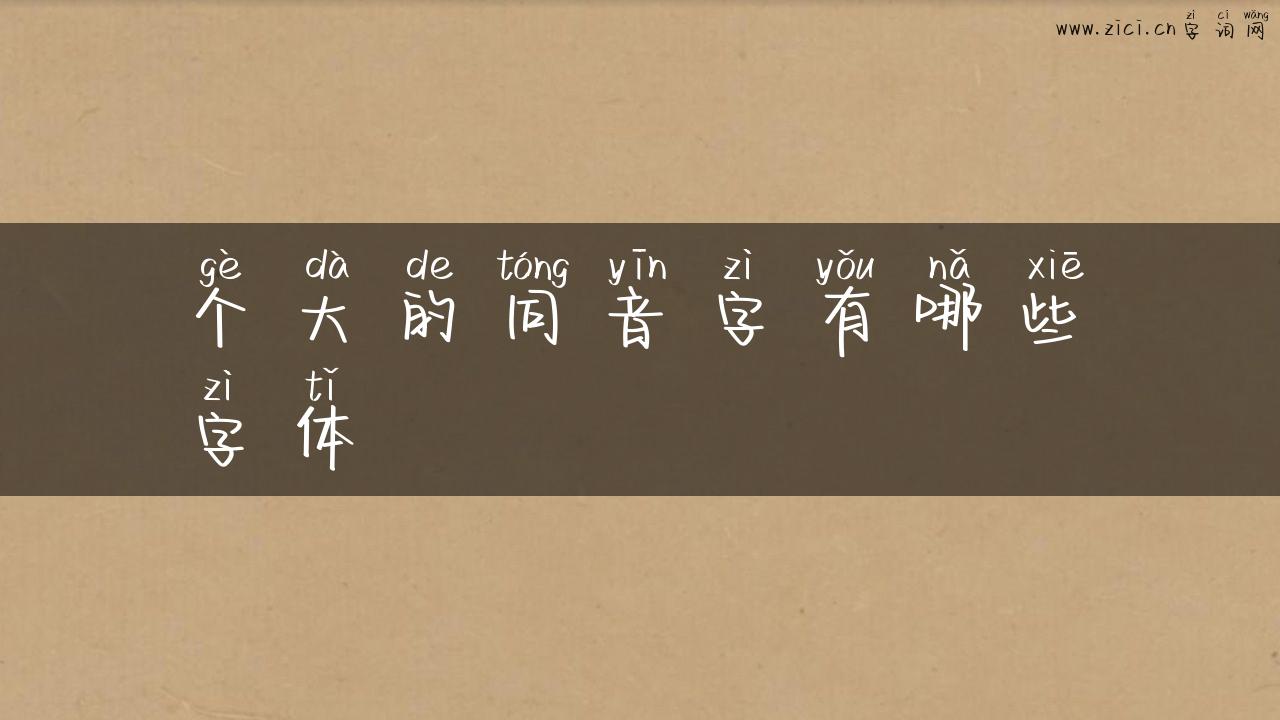 zì cí wǎng
www.zici.cn 字词网
gè dà de tóng yīn zì yǒu nǎ xiē
个大的同音字有哪些
zì tǐ
字体